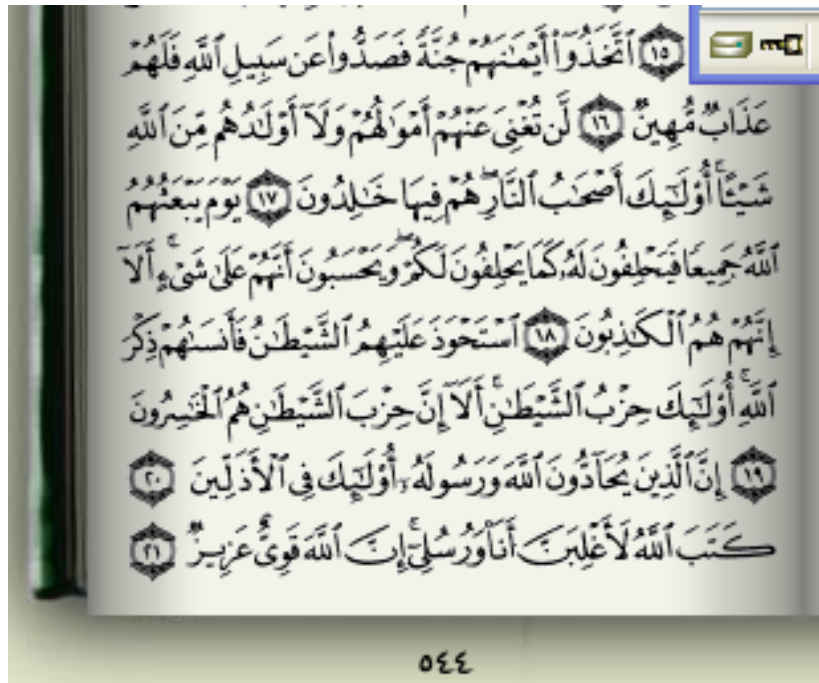 ١٥ ٱتَّخَذُوٓا۟ أَيْمَٰنَهُمْ جُنَّةً فَصَدُّوا۟ عَن سَبِيلِ ٱللَّهِ فَلَهُمْ
عَذَابٌ مُّهِينٌ ١٦ لَّن تُغْنِىَ عَنْهُمْ أَمْوَٰلُهُمْ وَلَآ أَوْلَٰدُهُم مِّنَ ٱللَّهِ
شَيْـًٔا ۚ أُو۟لَٰٓئِكَ أَصْحَٰبُ ٱلنَّارِ ۖ هُمْ فِيهَا خَٰلِدُونَ ١٧ يَوْمَ يَبْعَثُهُمُ
ٱللَّهُ جَمِيعًا فَيَحْلِفُونَ لَهُۥ كَمَا يَحْلِفُونَ لَكُمْ ۖ وَيَحْسَبُونَ أَنَّهُمْ عَلَىٰ شَىْءٍ ۚ أَلَآ
إِنَّهُمْ هُمُ ٱلْكَٰذِبُونَ ١٨ ٱسْتَحْوَذَ عَلَيْهِمُ ٱلشَّيْطَٰنُ فَأَنسَىٰهُمْ ذِكْرَ
ٱللَّهِ ۚ أُو۟لَٰٓئِكَ حِزْبُ ٱلشَّيْطَٰنِ ۚ أَلَآ إِنَّ حِزْبَ ٱلشَّيْطَٰنِ هُمُ ٱلْخَٰسِرُونَ
١٩ إِنَّ ٱلَّذِينَ يُحَآدُّونَ ٱللَّهَ وَرَسُولَهُۥٓ أُو۟لَٰٓئِكَ فِى ٱلْأَذَلِّينَ ٢٠
كَتَبَ ٱللَّهُ لَأَغْلِبَنَّ أَنَا۠ وَرُسُلِىٓ ۚ إِنَّ ٱللَّهَ قَوِىٌّ عَزِيزٌ ٢١
٥٤٤